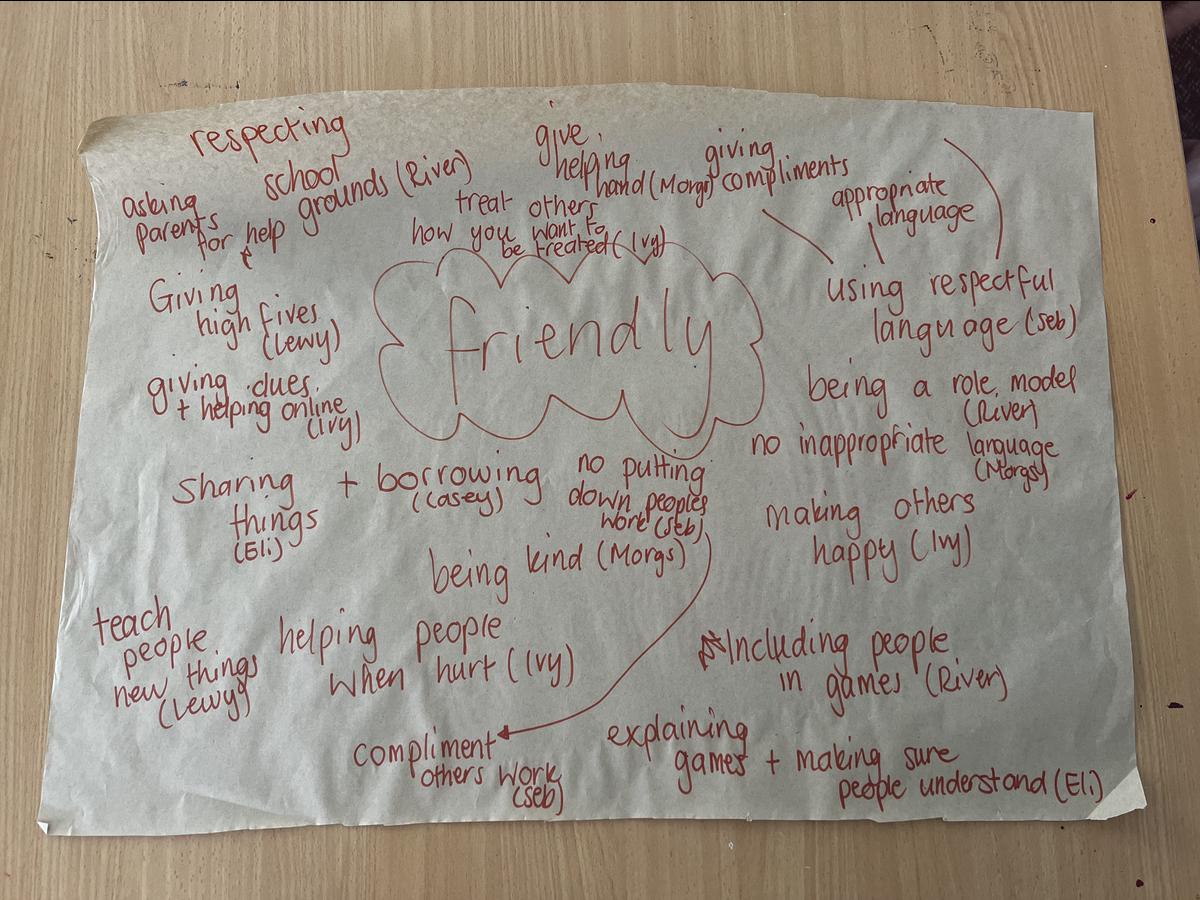 respecting
school
grounds (River)
asking
parents
for help
give
helping
hand (Morgs)
giving
compliments
treat others
how you want to
be treated (Ivy)
appropriate
language
friendly
Giving
high fives
(Lewy)
using respectful
language (Seb)
giving clues
+ helping online
(Ivy)
being a role model
(River)
no inappropriate language
(Morgs)
Sharing
things
(Eli)
+ borrowing
(Casey)
no putting
down peoples
work (Seb)
making others
happy (Ivy)
being kind (Morgs)
teach
people
new things
(Lewy)
helping people
when hurt (Ivy)
Including people
in games (River)
compliment
others work
(Seb)
explaining
games + making sure
people understand (Eli)